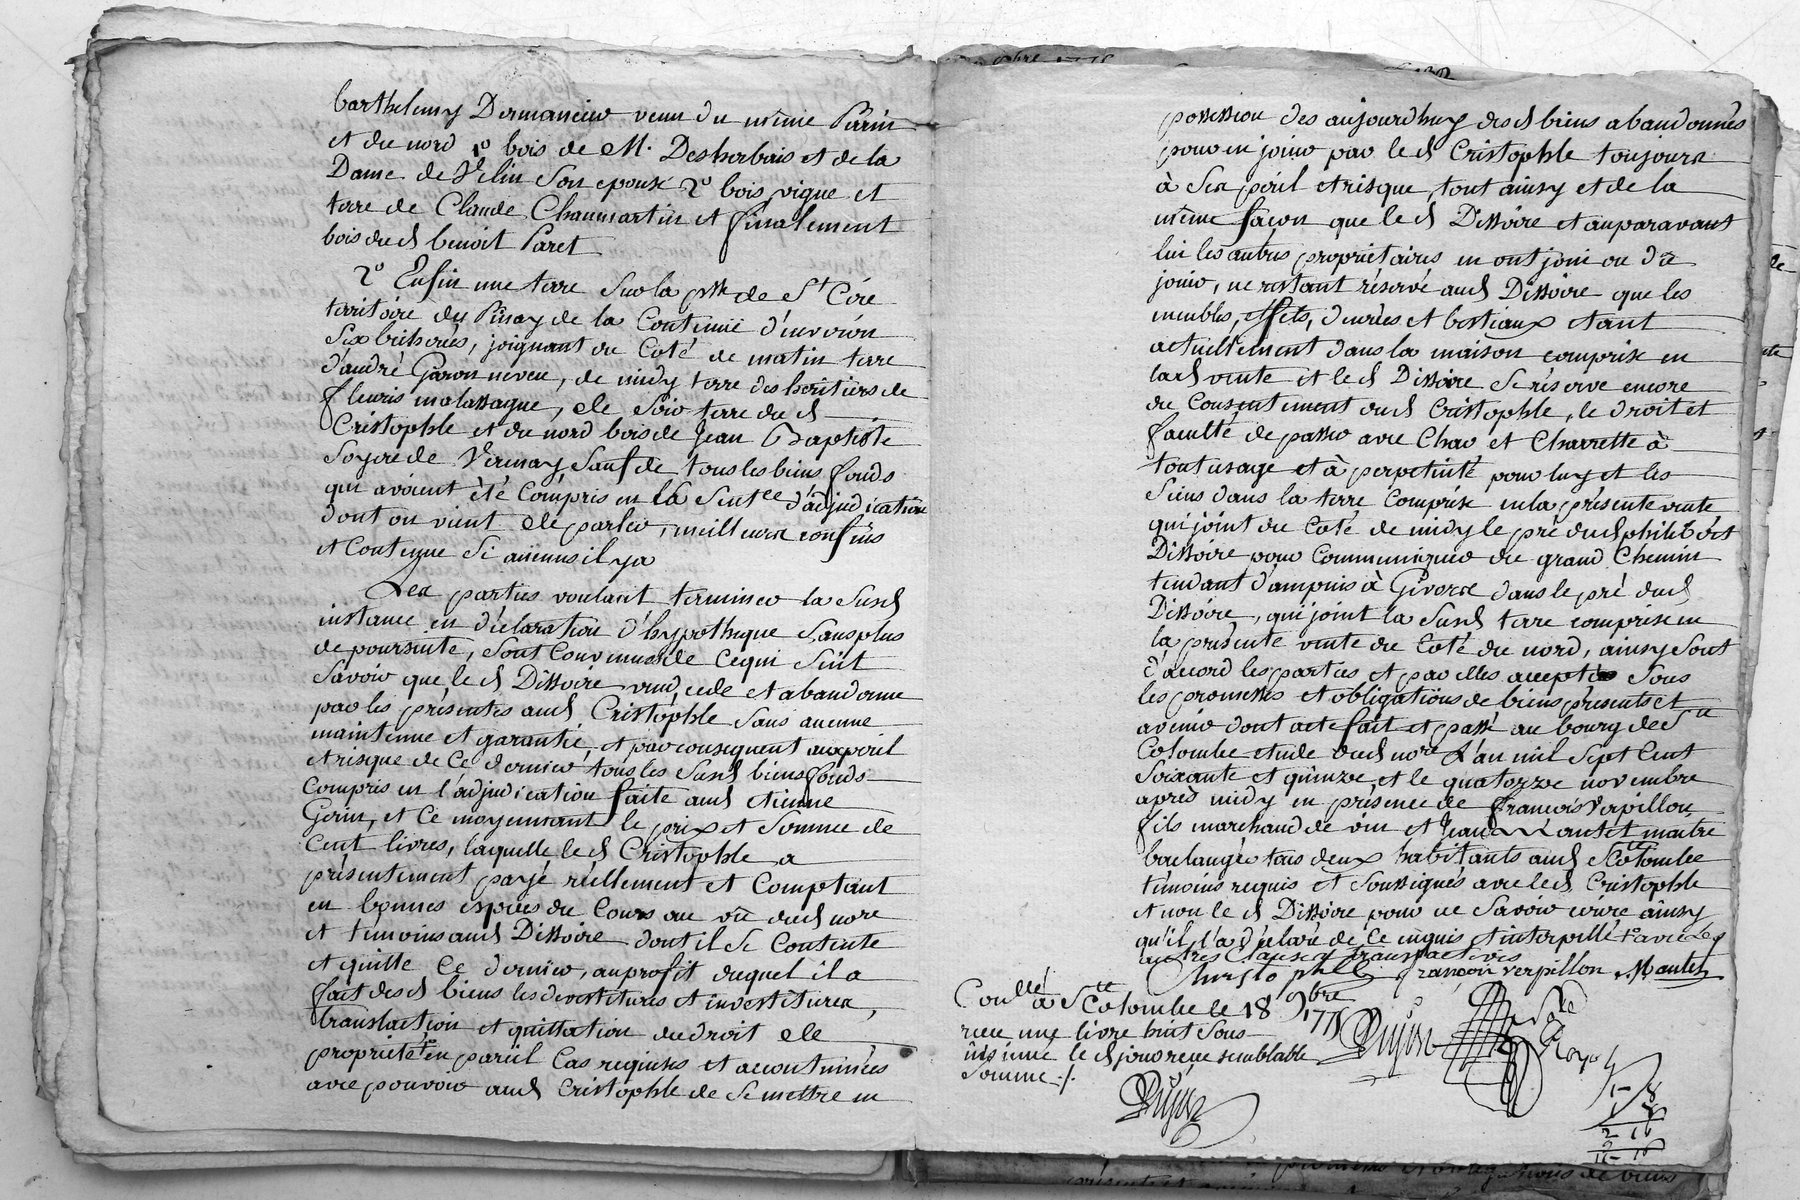 barthelemy Dermancieu venu du même Perin
et du nord 1o bois de M. Desherbais et de la
Dame de Velin son epouse 2o bois vigne et
terre de Claude Chaumartin et finalement
bois dud benoit Paret
2o Enfin une terre sur la psse de St Cire
territoire du Pinay de la Contenüe d'environ
Six bicherées, joignant du Coté de matin terre
d'andré Garon neveu, de midy terre des heritiers de
fleuris malassagne, de soir terre du d
Cristophle et du nord bois de Jean Baptiste
Soyere de Vernay, sauf de tous les biens fonds
qui avoient été Compris en la Sentce d'adjudication
dont on vient de parler, meilleurs confins
et Contenue Si aucuns il ya
Les parties voulant terminer la Susd
instance en déclaration d'hypotheque Sans plus
de poursuite, Sont Convenues de Ce qui Suit
Savoir que le d Dissoire vend, cede et abandonne
par les présentes aud Cristophle Sans aucune
maintenue et garantie, et par consequent aux peril
et risque de Ce dernier tous les Susd biens fonds
Compris en l'adjudication faite aud etienne
Gerin, et Ce moyennant le prix et Somme de
Cent livres, laquelle le d Cristophle a
présentement payé réellement et Comptant
en bonnes especes du Cours au vû dud nore
et témoins aud Dissoire dont il Se Contente
et quitte Ce dernier, au profit duquel il a
fait desd biens les devestitures et investitures,
translaction et quittation du droit de
proprieté to en pareil Cas requises et accoutumées
avec pouvoir aud Cristophle de Se mettre en
possession des aujourdhuy desd biens abandonnés
pour en jouir par le d Cristophle toujours
à Ses péril et risque, tout ainsy et de la
même façon que le d Dissoire et auparavant
lui les autres propriétaires en ont joui ou dû
jouir, ne restant réservé aud Dissoire que les
meubles, effets, denrées et bestiaux etant
actuellement dans la maison comprise en
lad vente et le d Dissoire Se réserve encore
du Consentement dud Cristophle, le droit et
faculté de passer avec Char et Charrette à
tout usage et à perpetuité pour luy et les
Siens dans la terre Comprise en la présente vente
qui joint du Coté de midy le pré dud philibert
Dissoire pour Communiquer du grand Chemin
tendant d'ampuis à Givors dans le pré dud
Dissoire, qui joint la Susd terre comprise en
la présente vente du Coté du nord, ainsy Sont
d'accord les parties et par elles accepté Sous
les promesses et obligations de biens présents et
avenir dont acte fait et passé au bourg de Ste
Colombe etude dud nore L'an mil Sept Cent
Soixante et quinze, et le quatorze novembre
après midy en présence de françois Verpillon,
fils marchand de vin et Jean Mantet maitre
boulanger tous deux habitants aud Ste Colombe
témoins requis et Soussignés avec led Cristophle
et non le d Dissoire pour ne Savoir ecrire ainsy
qu'il l'a déclaré de Ce enquis et interpellé to avec les
autres Clauses translatives
Christophle françois verpillon Mantet
Conllé à Ste Colombe le 18 9bre 1775
recu une livre huit Sous
insinué le d jour reçu semblable
Somme ./.
Dujast
Dujast
1 - 8
1 8
2 16